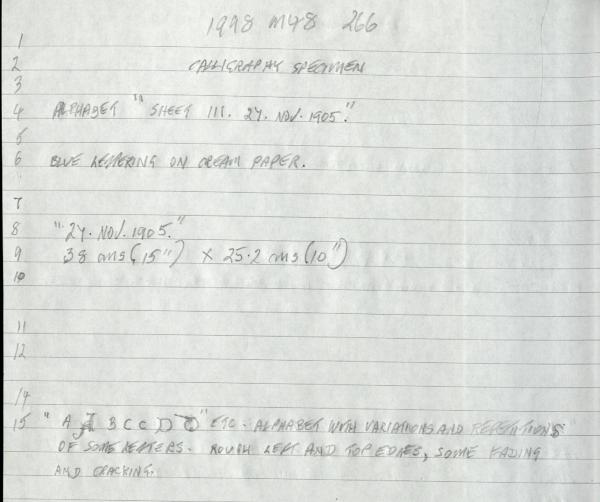 1998 M48 266
1
2 CALLIGRAPHY SPECIMEN
3
4 ALPHABET "SHEET III. 24. NOV. 1905."
5
6 BLUE LETTERING ON CREAM PAPER.
7
8 "24. NOV. 1905."
9 38 cms (15") × 25.2 cms (10")
10
11
12
14
15 "A A B C C D D" ETC. ALPHABET WITH VARIATIONS AND REPETITIONS
OF SOME LETTERS. ROUGH LEFT AND TOP EDGES, SOME FADING
AND CRACKING.